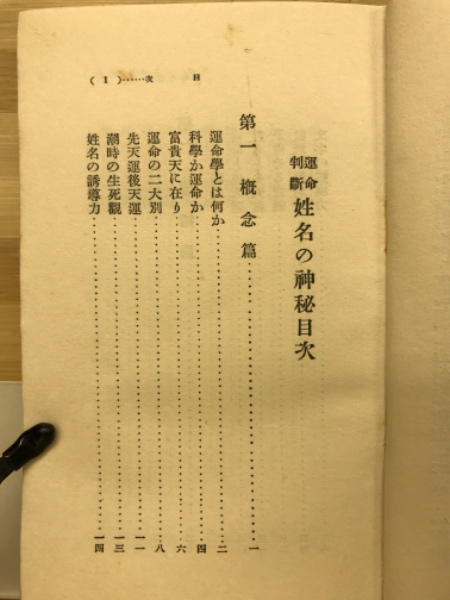 目次……(1)
運命判斷 姓名の神秘目次
第一 概念篇……一
運命學とは何か……二
科學か運命か……四
富貴天に在り……六
運命の二大別……八
先天運後天運……一一
潮時の生死觀……一三
姓名の誘導力……一四